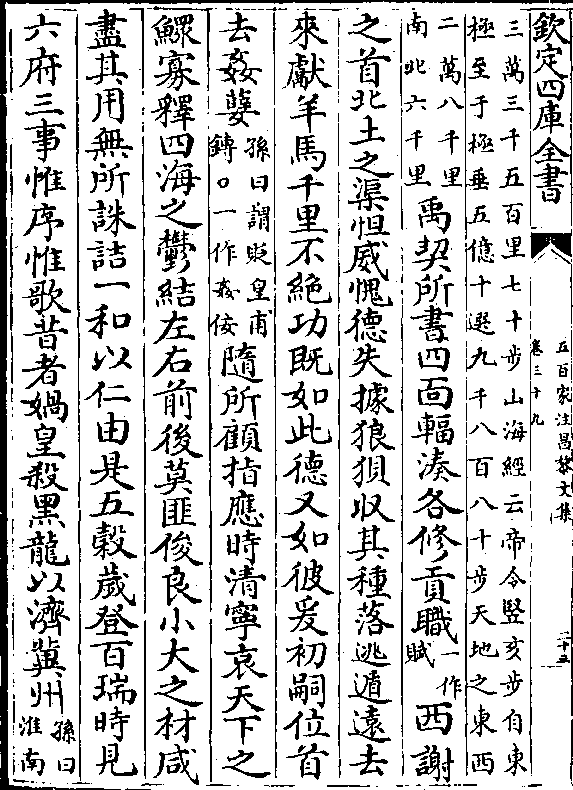 欽定四庫全書
五百家注昌黎文集
卷三十九
二十五
三萬三千五百里七十步山海經云帝令豎亥步自東
極至于極垂五億十選九千八百八十步天地之東西
二萬八千里
南北六千里
禹契所書四面輻湊各修貢職
一作
賦
西謝
之首北土之渠怛威愧德失據狼狽収其種落逃遁遠去
來獻羊馬千里不絶功既如此德又如彼爰初嗣位首
去姦孽
孫曰謂貶皇甫
鎛○一作姦佞
隨所顧指應時清寧哀天下之
鰥寡釋四海之鬱結左右前後莫匪俊良小大之材咸
盡其用無所誅詰一和以仁由是五穀歲登百瑞時見
六府三事惟序惟歌昔者媧皇殺黑龍以濟冀州
孫曰
淮南